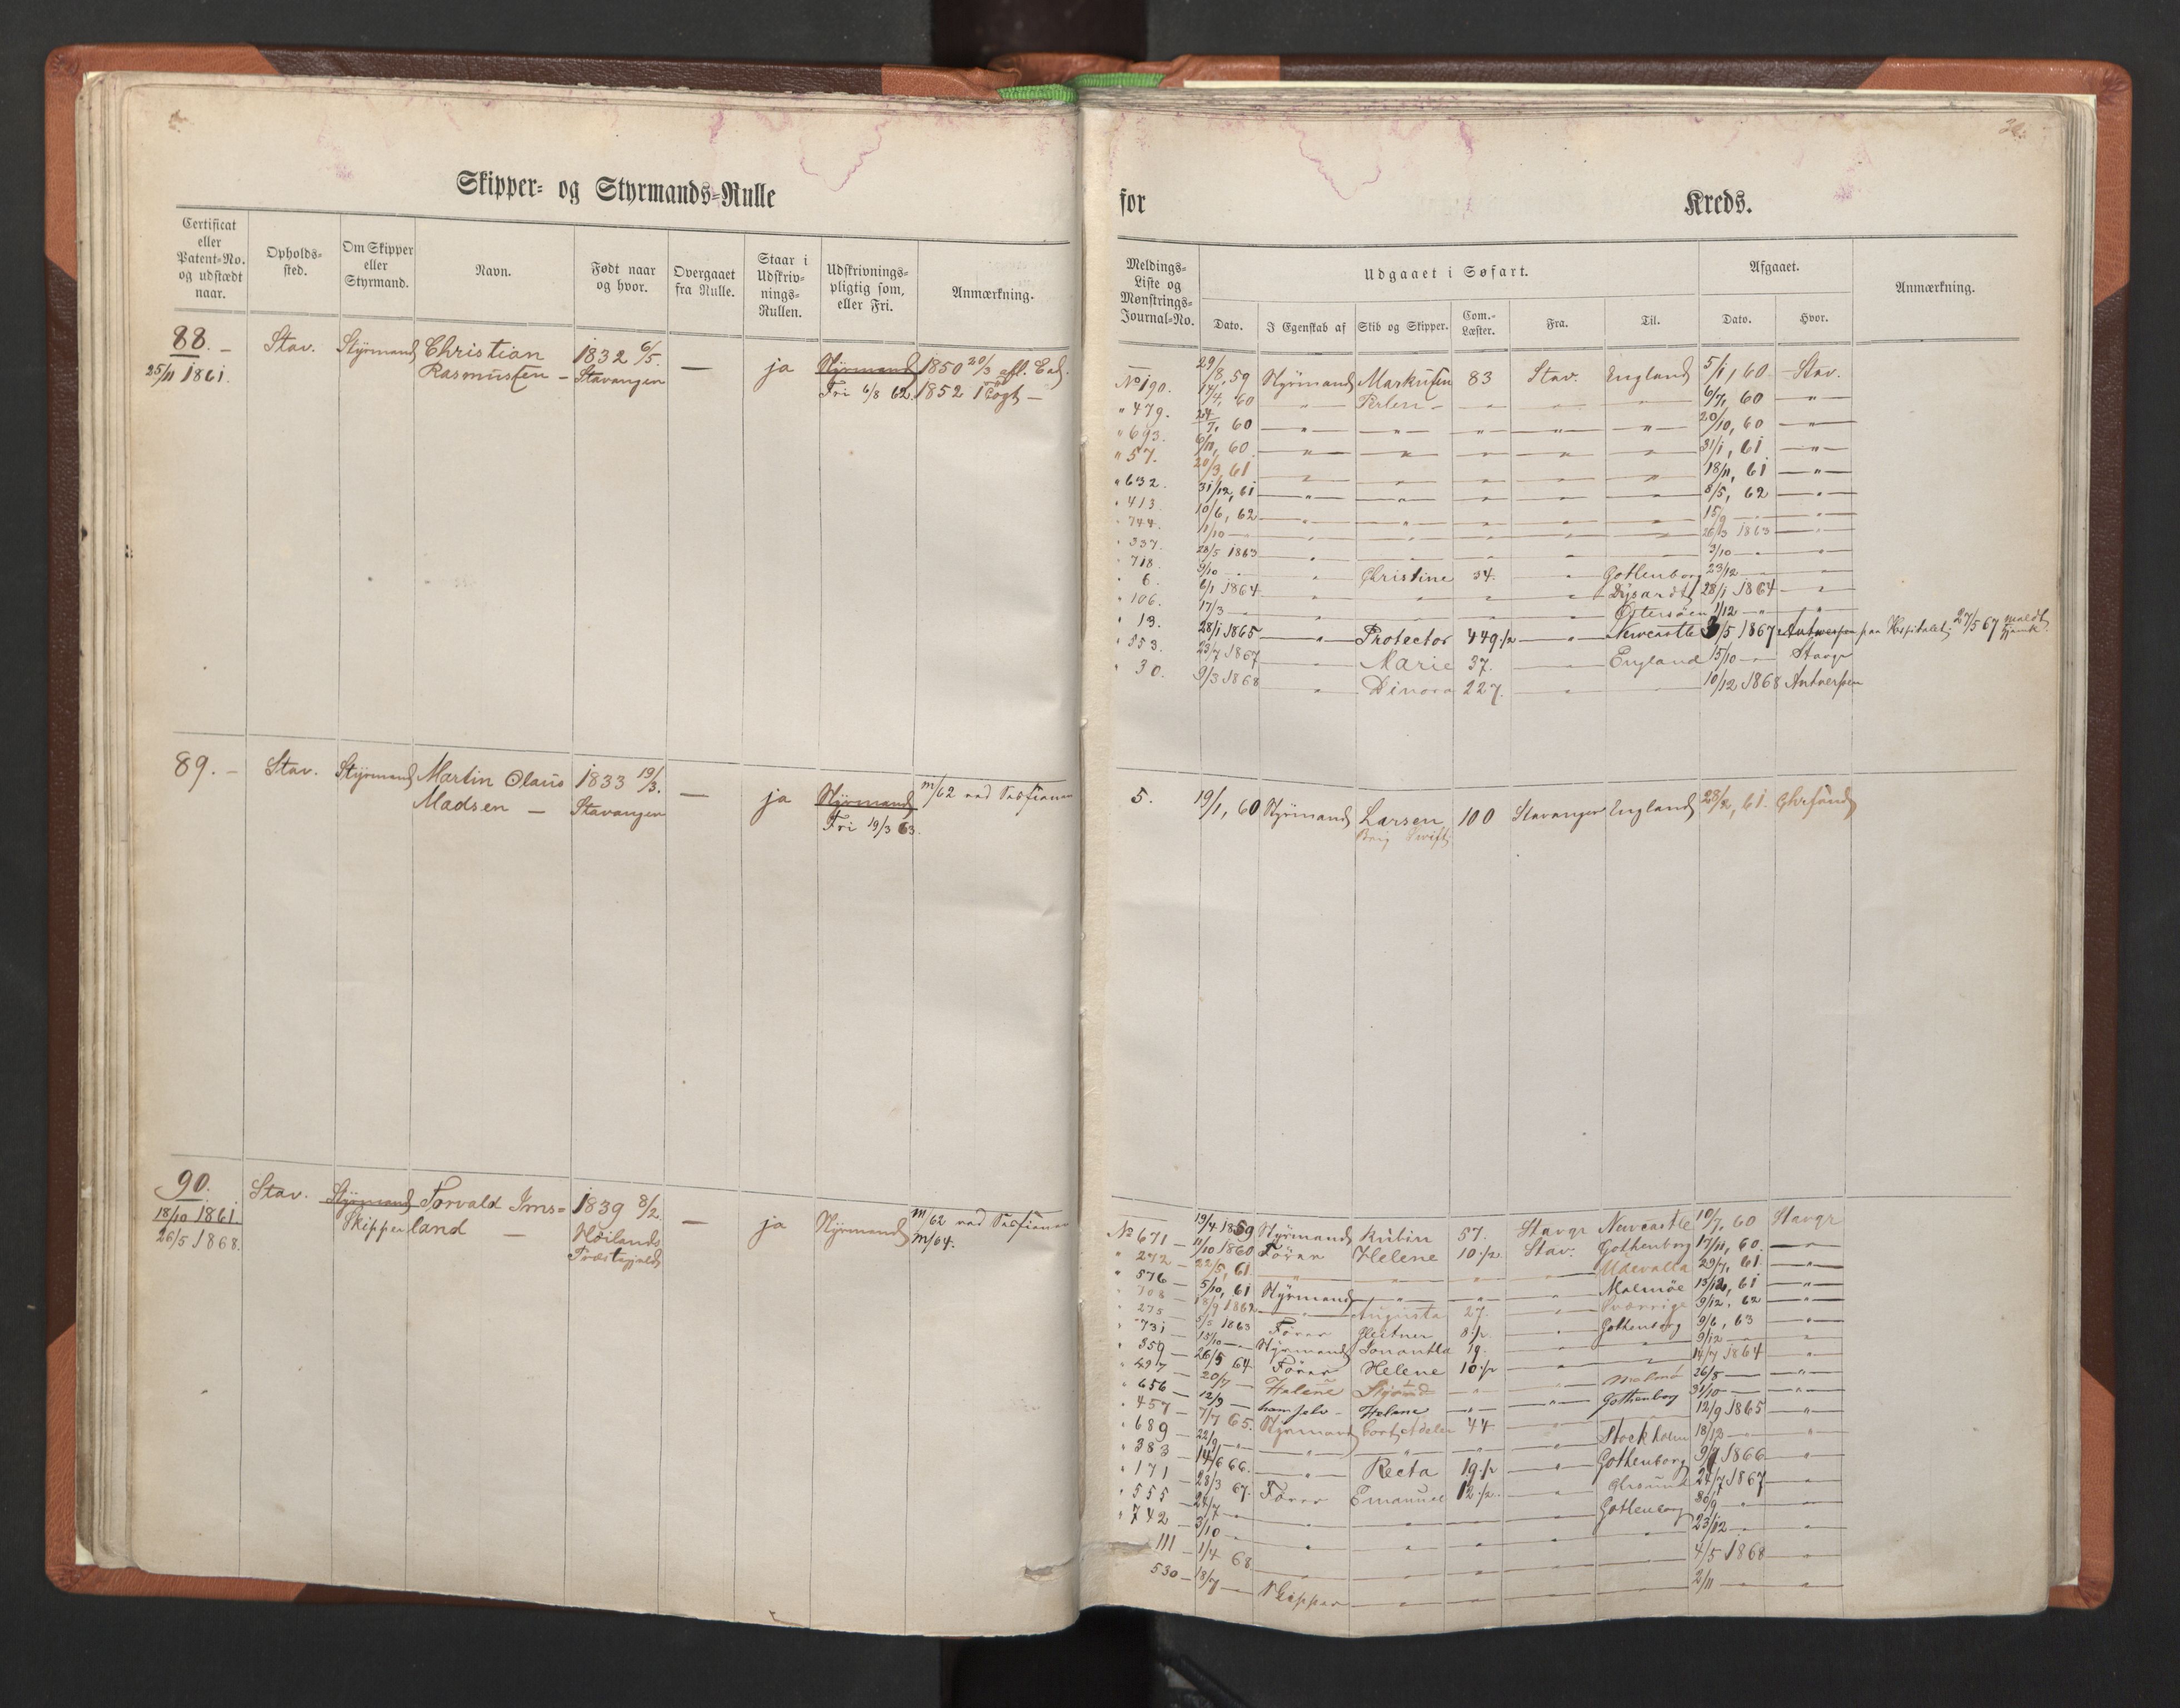 Skipper- og Styrmands-Rulle
Certificat eller Patent-No. og udstædt naar.
Opholds-sted.
Om Skipper eller Styrmand.
Navn.
Født naar og hvor.
Overgaaet fra Rulle.
Staar i Udskriv-nings-Rullen.
Udskrivnings-pligtig som, eller Fri.
Anmærkning.
88. — Stav. Styrmand Christian 1832 6/5. — ja Styrmand 1850 20/3 afl. Ed.
25/11 1861. Rasmussen — Stavanger Fri 6/8 62. 1852 Togt —
89. — Stav. Styrmand Martin Olaus 1833 19/3. — ja Styrmand m/62
Madsen — Stavanger Fri 19/3 63.
90. Stav. Styrmand Torvald Ims= 1839 8/2. — ja Styrmand m/62
18/10 1861. Skipper land — Höilands m/64.
26/5 1868. Præstegjeld
for Kreds.
Meldings-Liste og Mønstrings-Journal-No.
Udgaaet i Søfart.
Dato.
I Egenskab af
Skib og Skipper.
Com.-Læster.
Fra.
Til.
Afgaaet.
Dato.
Hvor.
Anmærkning.
— 29/8, 59 Styrmand Markussen 83 Stav. England 5/1, 60 Stav.
No 190. 14/4, 60 — " — Perlen — " — " — " 6/7, 60 — " —
" 479. 24/7, 60 — " — " — " — " — " 20/10, 60 — " —
" 693. 6/11, 60 — " — " — " — " — " 31/1, 61 — " —
" 57. 20/3, 61 — " — " — " — " — " 18/11, 61 — " —
" 632. 31/12, 61 — " — " — " — " — " 8/5, 62 — " —
" 413. 10/6, 62 — " — " — " — " — " 15/9 — " —
" 744. 11/10 — " — " — " — " — " 26/3 1863 — " —
" 337. 28/5 1863 — " — " — " — " — 3/10 — " —
" 718. 9/10 — " — Christine 34. — " Gothenborg 23/12 — " —
" 6. 6/1 1864 — " — " — " — " Dysardt 28/1 1864 — " —
" 106. 17/3 — " — " — " — " Östersöen 1/12 — " —
" 13. 28/1 1865 — " — Protector 449 1/2 — " Newcastle 3/5 1867 Antwerpen paa Hospitalet; 27/5 67
" 353. 23/7 1867 — " — Marie 37. — " England 15/10 — Stavgr
" 30. 9/3 1868 — " — Dinora 227. — " — 10/12 1868 Antwerpen
5. 19/1, 60 Styrmand Larsen 100 Stavanger England 61. Chrsand
Brig Swift
19/4 1859 Styrmand Rubin 57. Stavgr Newcastle 10/7, 60 Stavgr
No 671 — 11/10 1860 Förer Helene 10 1/2 Stav: Gothenborg 17/11, 60. — " —
" 272 — 22/5, 61. — " — " — " — " Udevalla 29/7, 61. — " —
" 576 — 5/10, 61 Styrmand — " — " — " Malmöe 13/12, 61 — " —
" 708 — 18/9 1862 — " — Augusta 27. — " Sverrige 9/12, 62 — " —
" 275 — 5/5 1863 Förer 8 1/2 — " Gothenborg 9/6, 63 — " —
" 731 — 15/10 — " Styrmand 19. — " — " 9/12 — " —
" 359 — 26/5 64. Förer Helene 10 1/2 — " — " 14/7 1864 — " —
" 497 — 20/7 — Helene Styrmd — " — " Malmö 26/8 — " —
" 656 — 12/9 — ham selv — Helene — " — " Gothenborg 31/10 — " —
" 457 — 7/7 65. Styrmand Cort Adeler 44 — " — 12/9 1865 — " —
" 689 — 22/9 — " — " — " — " — " Stockholm 18/12 — " —
" 383 — 14/6 66. — " — Recta 19 1/2 — " Gothenborg 9/ 1866 — " —
" 171 — 28/3 67. Förer Emanuel 12 1/2. — " Chrsund 24/7 1867 — " —
" 555 — 24/7 — " — " — " — " Gothenborg 30/9 — " —
" 742 — 3/10 — " — " — " — " — 23/12 — " —
111 — 1/4 68. — " — " — " — " — 4/5 1868 — " —
530 — 13/7 — Skipper — " — " — " — 2/11 — " —